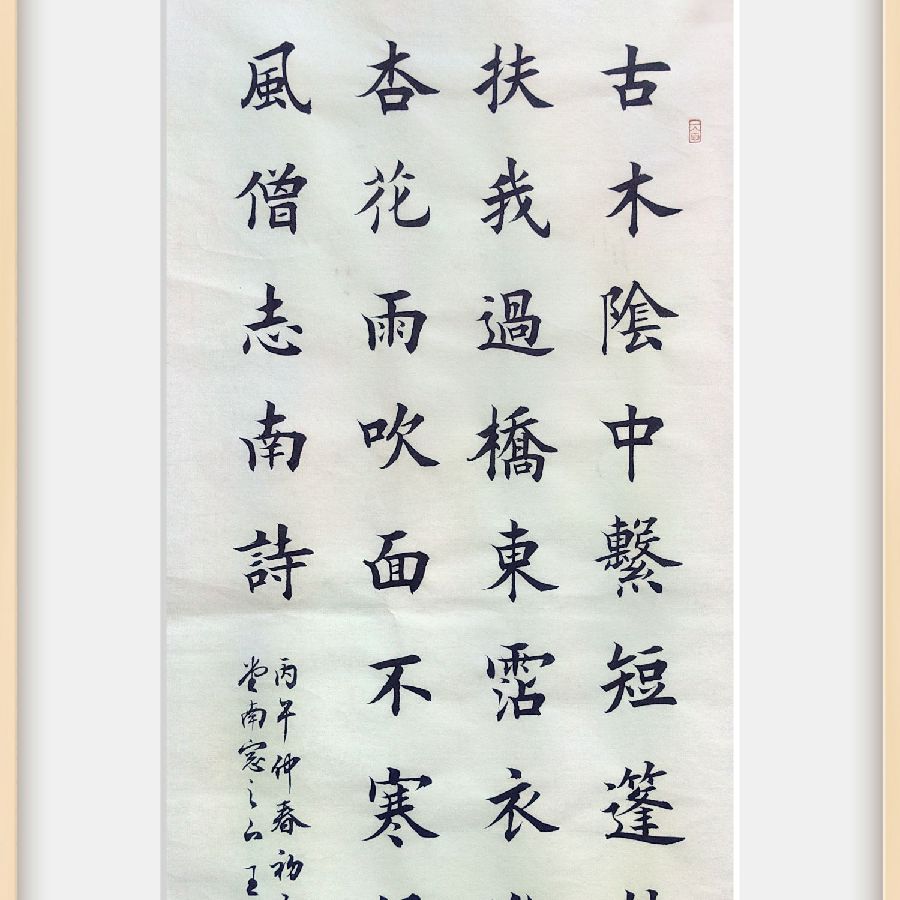 古木陰中繫短篷
扶我過橋東霑衣
杏花雨吹面不寒
風僧志南詩
丙午仲春初
堂南窓之下王